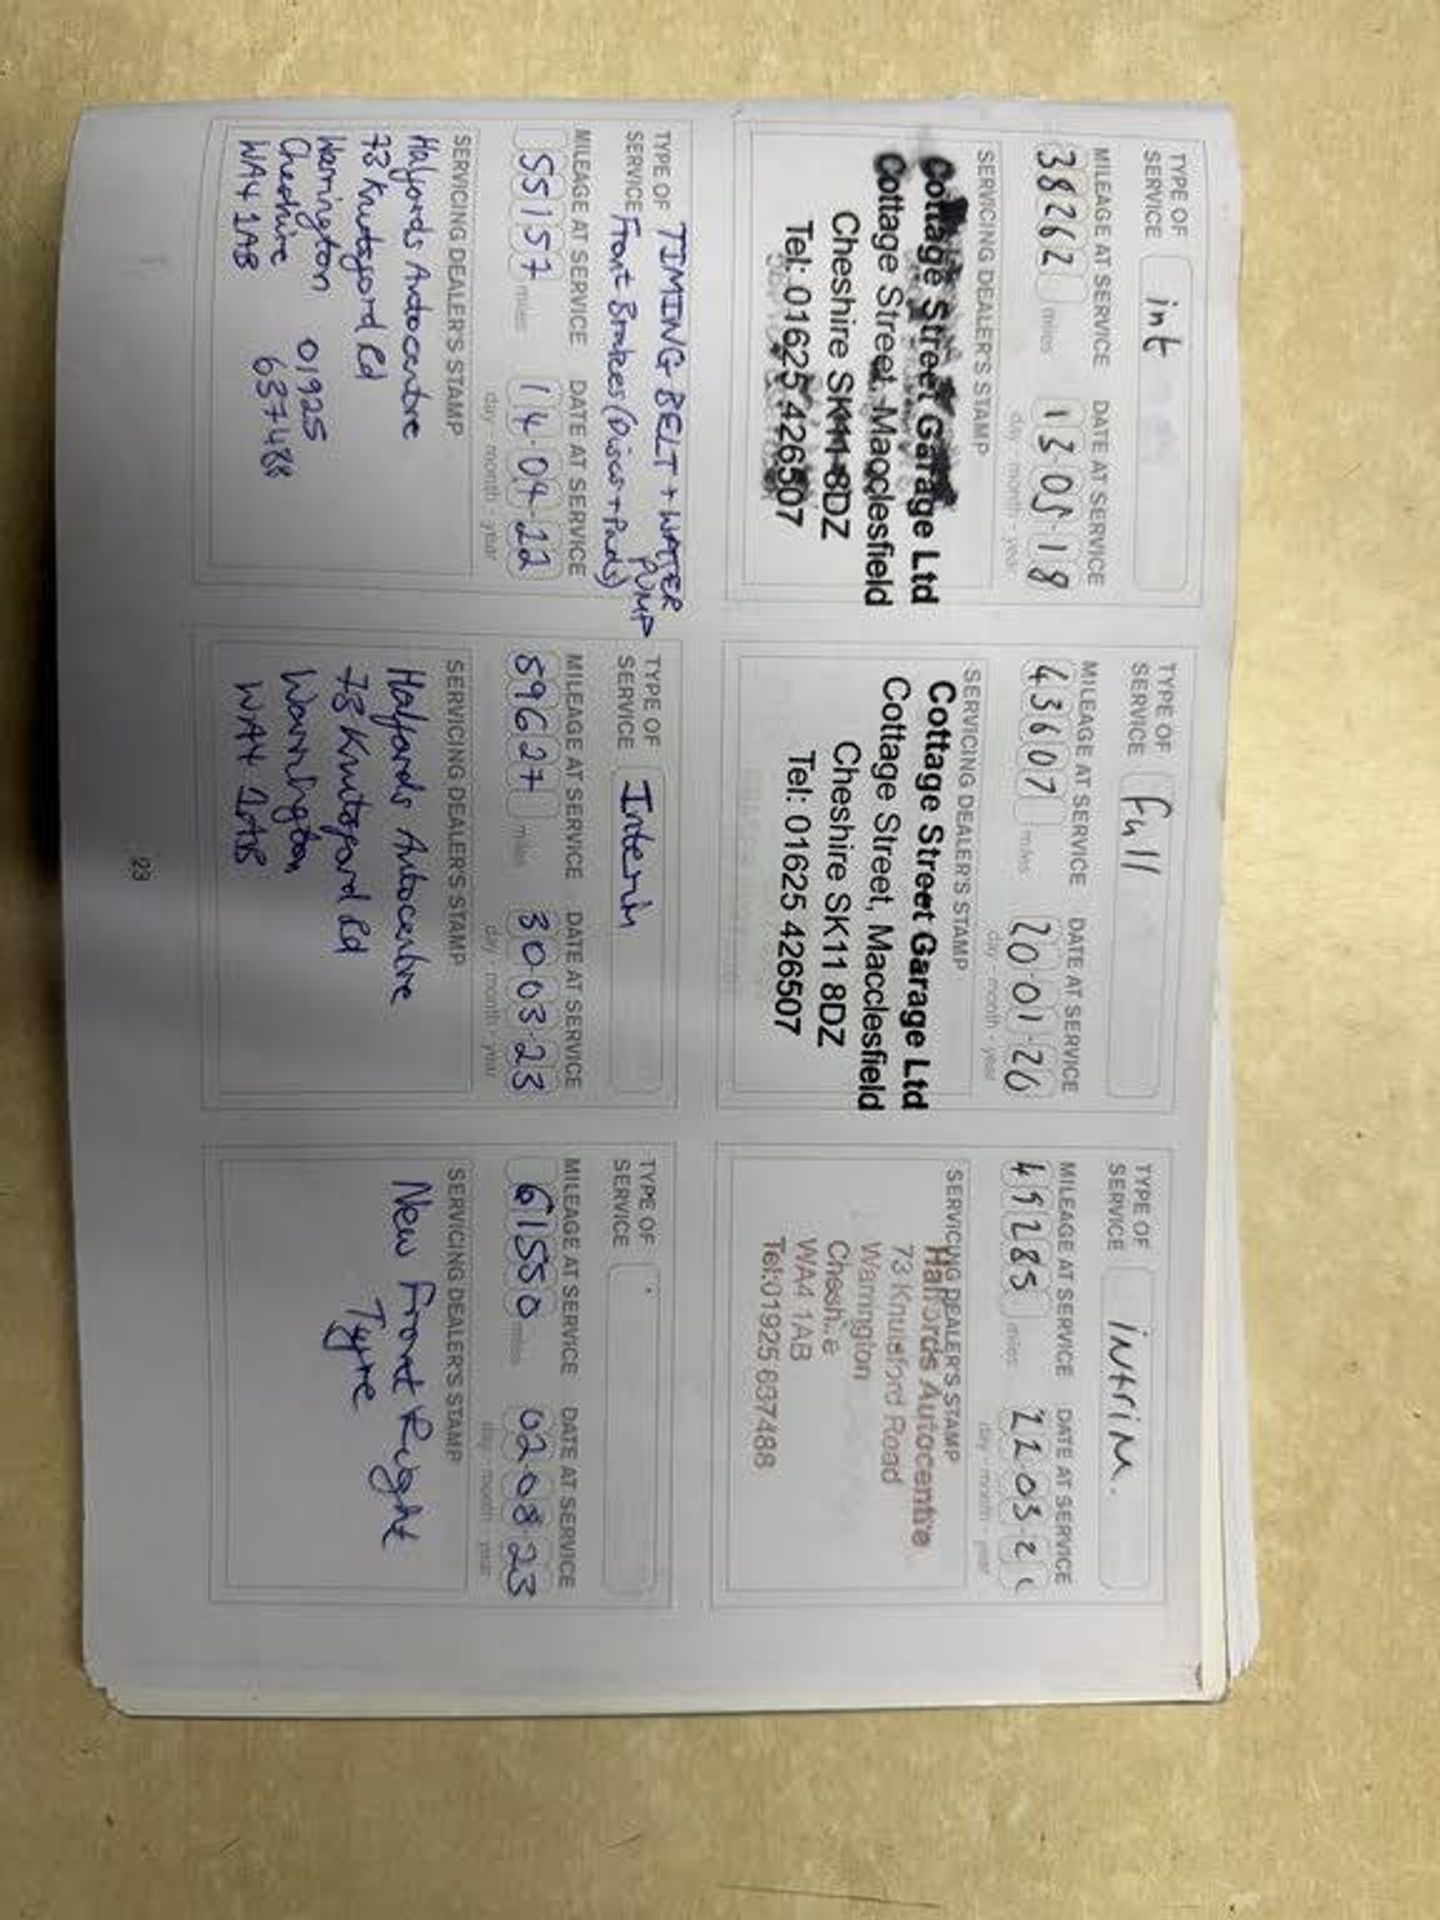 TYPE OF
SERVICE
int
MILEAGE AT SERVICE
DATE AT SERVICE
38262 miles
13·05·18
day - month - year
SERVICING DEALER'S STAMP
Cottage Street Garage Ltd
Cottage Street, Macclesfield
Cheshire SK11 8DZ
Tel: 01625 426507
TYPE OF
SERVICE
Full
MILEAGE AT SERVICE
DATE AT SERVICE
43607 miles
20·01·20
day - month - year
SERVICING DEALER'S STAMP
Cottage Street Garage Ltd
Cottage Street, Macclesfield
Cheshire SK11 8DZ
Tel: 01625 426507
TYPE OF
SERVICE
intrim.
MILEAGE AT SERVICE
DATE AT SERVICE
49285 miles
22 03·21
day - month - year
SERVICING DEALER'S STAMP
Halfords Autocentre
73 Knutsford Road
Warrington
Cheshire
WA4 1AB
Tel:01925 637488
TYPE OF
SERVICE
TIMING BELT + WATER PUMP
Front Brakes (Discs + Pads)
MILEAGE AT SERVICE
DATE AT SERVICE
55157 miles
14·04·22
day - month - year
SERVICING DEALER'S STAMP
Halfords Autocentre
73 Knutsford Rd
Warrington 01925
Cheshire 637488
WA4 1AB
TYPE OF
SERVICE
Interim
MILEAGE AT SERVICE
DATE AT SERVICE
59627 miles
30·03·23
day - month - year
SERVICING DEALER'S STAMP
Halfords Autocentre
73 Knutsford Rd
Warrington
WA4 1AB
TYPE OF
SERVICE
MILEAGE AT SERVICE
DATE AT SERVICE
61550 miles
02 08 23
day - month - year
SERVICING DEALER'S STAMP
New Front Right
Tyre
23